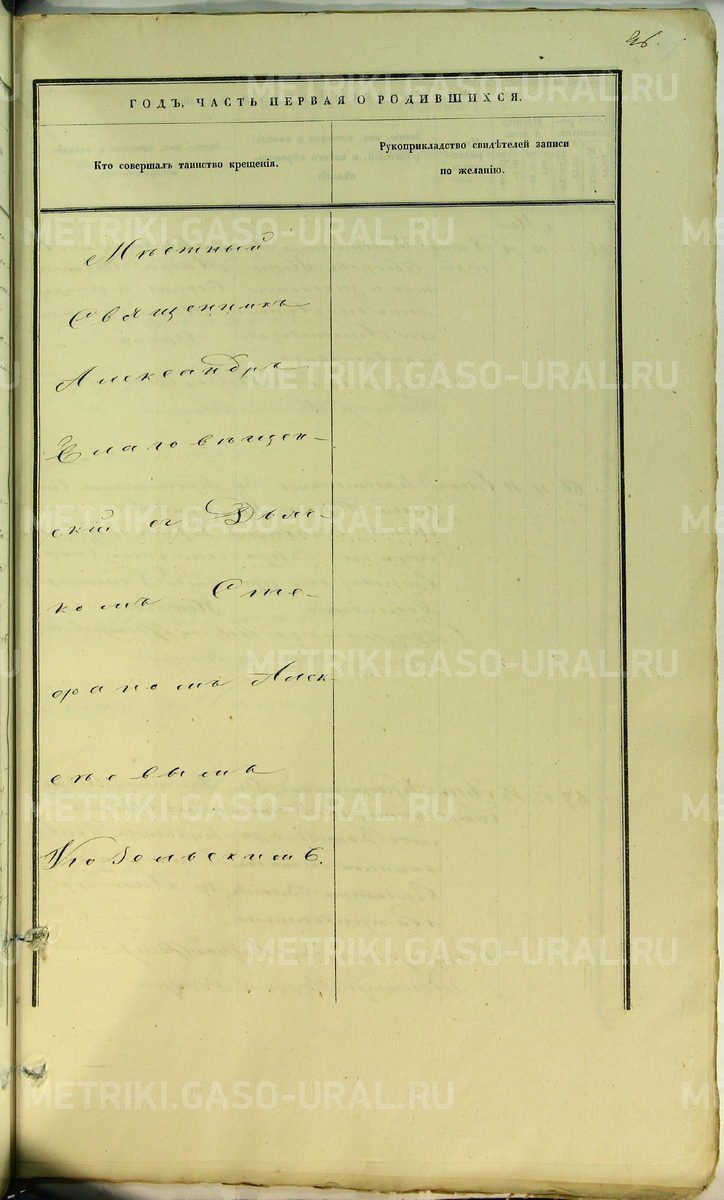 26.
ГОДЪ, ЧАСТЬ ПЕРВАЯ О РОДИВШИХСЯ.
Кто совершалъ таинство крещенія.
Рукоприкладство свидѣтелей записи
по желанію.
Мѣстный
Священникъ
Александръ
Благовѣщен-
скій съ Дьяч-
комъ Сте-
фаномъ Алек-
сѣевымъ
Козельскимъ.
METRIKI.GASO-URAL.RU